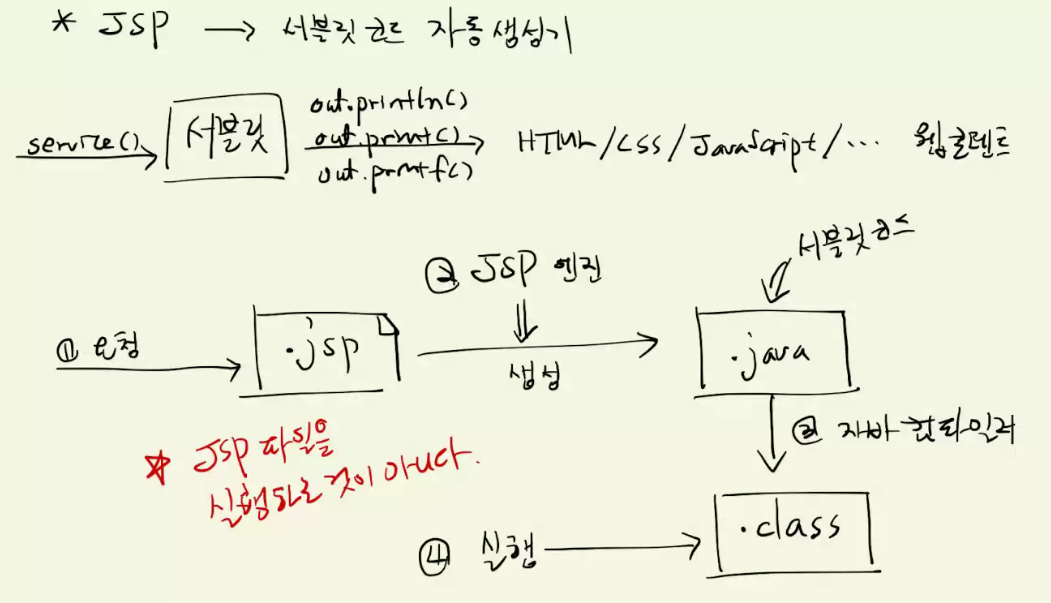 * JSP → 서블릿 코드 자동 생성기
service()
서블릿
out.println()
out.print()
out.printf()
HTML/CSS/JavaScript/… 웹콘텐트
① 요청
.jsp
② JSP 엔진
생성
서블릿 소스
.java
③ 자바 컴파일러
* JSP 파일을
실행하는 것이 아니다.
④ 실행
.class